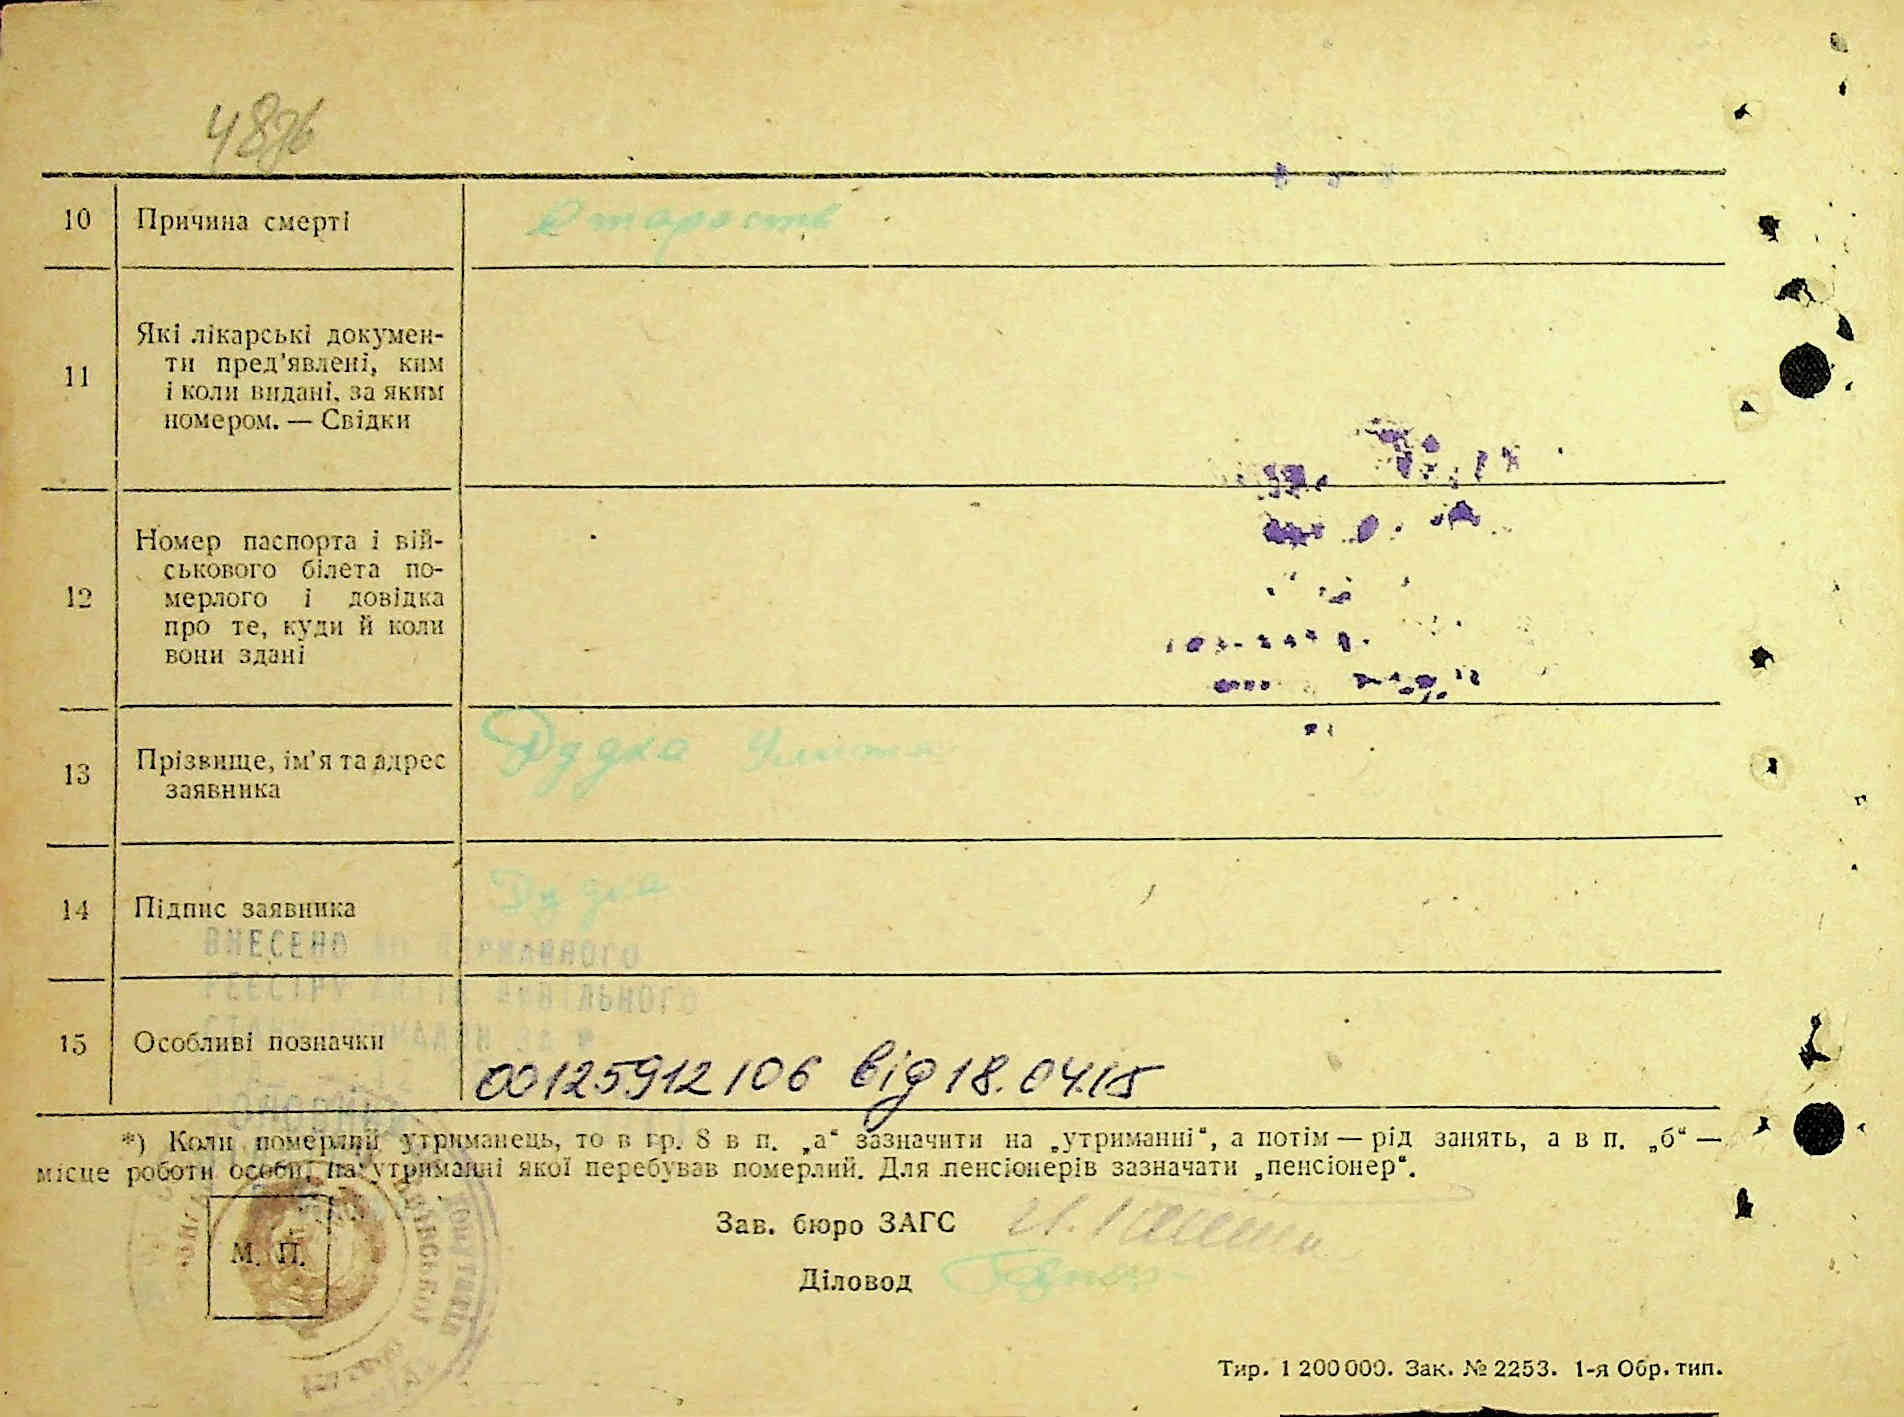 10 Причина смерті Старость
11 Які лікарські докумен-
ти пред'явлені, ким
і коли видані, за яким
номером. — Свідки
12 Номер паспорта і вій-
ськового білета по-
мерлого і довідка
про те, куди й коли
вони здані
13 Прізвище, ім'я та адрес Дудка
заявника
14 Підпис заявника Дудка
ВНЕСЕНО ДО ДЕРЖАВНОГО
РЕЄСТРУ АКТІВ ЦИВІЛЬНОГО
СТАНУ ГРОМАДЯН ЗА №
15 Особливі позначки
00125912106 від 18.04.15
*) Коли померлий утриманець, то в гр. 8 в п. „а“ зазначити на „утриманні“, а потім — рід занять, а в п. „б“ —
місце роботи особи, на утриманні якої перебував померлий. Для пенсіонерів зазначати „пенсіонер“.
М. П.
Зав. бюро ЗАГС
Діловод
Тир. 1 200 000. Зак. № 2253. 1-я Обр. тип.